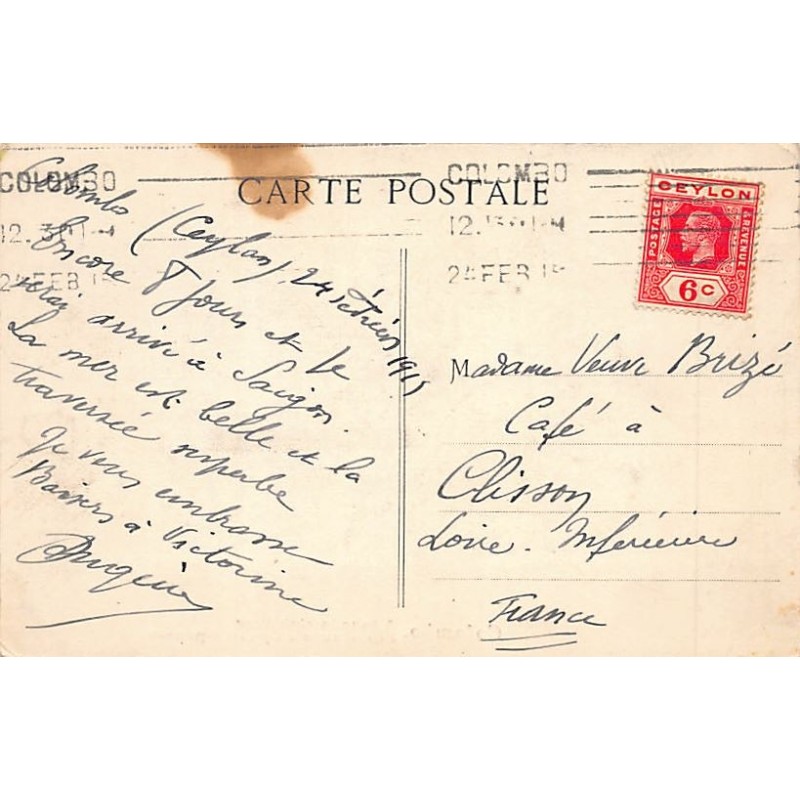 CARTE POSTALE
COLOMBO
12.30 PM
24 FEB 15
COLOMBO
12.30 PM
24 FEB 15
CEYLON
POSTAGE
& REVENUE
6 C
Colombo (Ceylan), 24 février 1915
Encore 8 jours et je
serai arrivé à Saigon
La mer est belle et la
traversée superbe
Je vous embrasse
Baisers à Victorine
Madame Veuve Brizé
Café à
Clisson
Loire-Inférieure
France